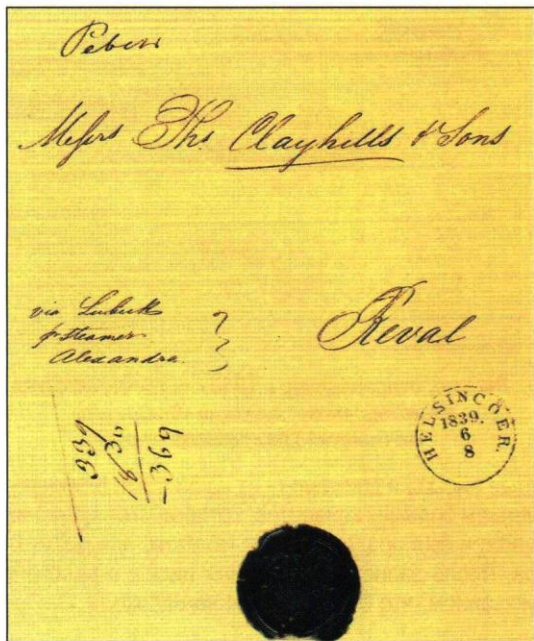 Messrs Ths Clayhills & Sons
via Lubeck
pr Steamer
Alexandra.
Reval
HELSINGÖER.
1839.
6
8
939
1830
-369